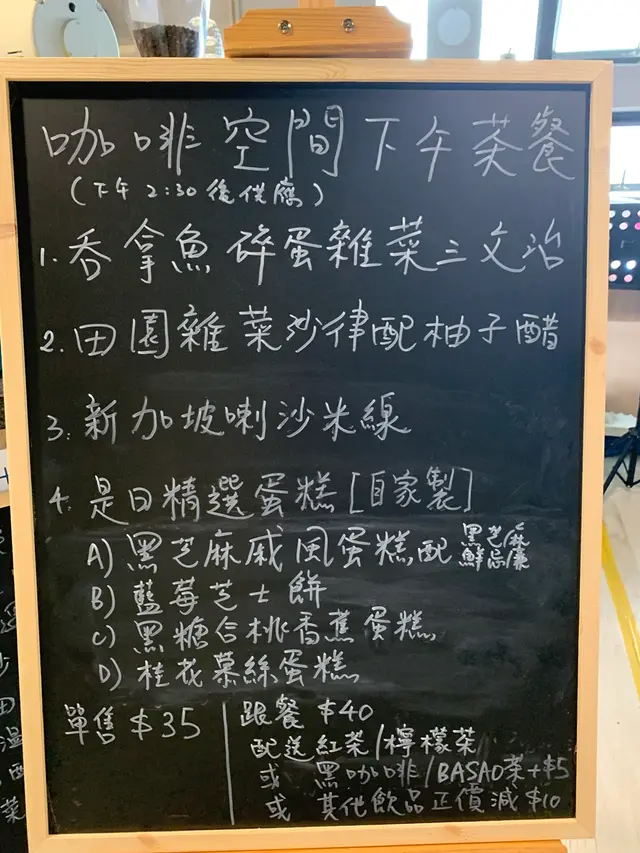 咖啡空間下午茶餐
(下午2:30後供應)
1. 吞拿魚碎蛋雜菜三文治
2. 田園雜菜沙律配柚子醋
3. 新加坡喇沙米線
4. 是日精選蛋糕[自家製]
A) 黑芝麻戚風蛋糕配黑芝麻鮮忌廉
B) 藍莓芝士餅
C) 黑糖合桃香蕉蛋糕
D) 桂花慕絲蛋糕
單售$35
跟餐$40
配送紅茶/檸檬茶
或 黑咖啡/BASAO茶+$5
或 其他飲品正價減$10